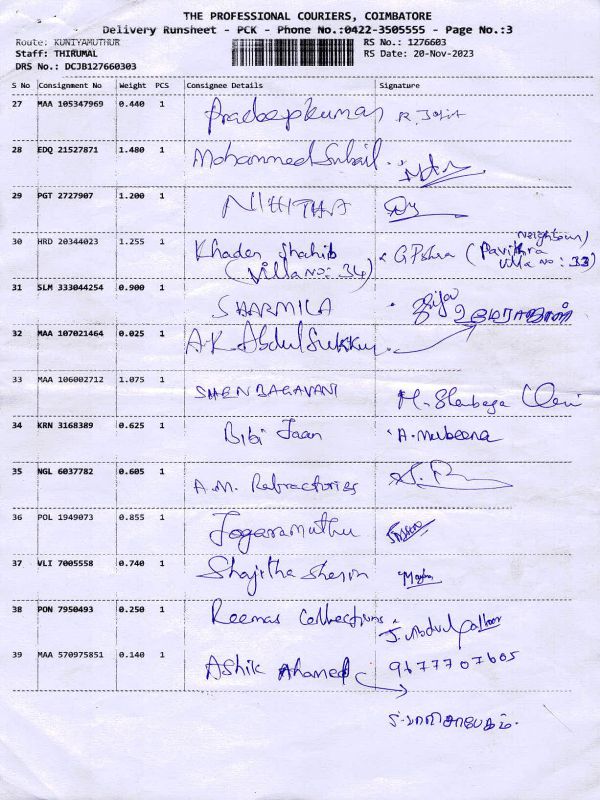 THE PROFESSIONAL COURIERS, COIMBATORE
Delivery Runsheet - PCK - Phone No.:0422-3505555 - Page No.:3
Route: KUNIYAMUTHUR RS No.: 1276603
Staff: THIRUMAL RS Date: 20-Nov-2023
DRS No.: DCJB127660303
S No Consignment No Weight PCS Consignee Details Signature
27 MAA 105347969 0.440 1 Pradeepkumar
28 EDQ 21527871 1.480 1 Mohammed Suhail.
29 PGT 2727907 1.200 1 NIHITHA
30 HRD 20344023 1.255 1 Khader Shahib (Villa No: 34) (Pavithra Neighbour) Villa No: 33)
31 SLM 333044254 0.900 1 SHARMILA
32 MAA 107021464 0.025 1 A.K Abdul Sukkur
33 MAA 106002712 1.075 1 SHENBAGAVANI
34 KRN 3168389 0.625 1 Bibi Jaan A. Mubeena
35 NGL 6037782 0.605 1 A.M. Refractories
36 POL 1949073 0.855 1 Jogaramuthu
37 VLI 7005558 0.740 1 Shajitha Sherin
38 PON 7950493 0.250 1 Reemas Collections J. Abdul
39 MAA 570975851 0.140 1 Ashik Ahamed 9677707605